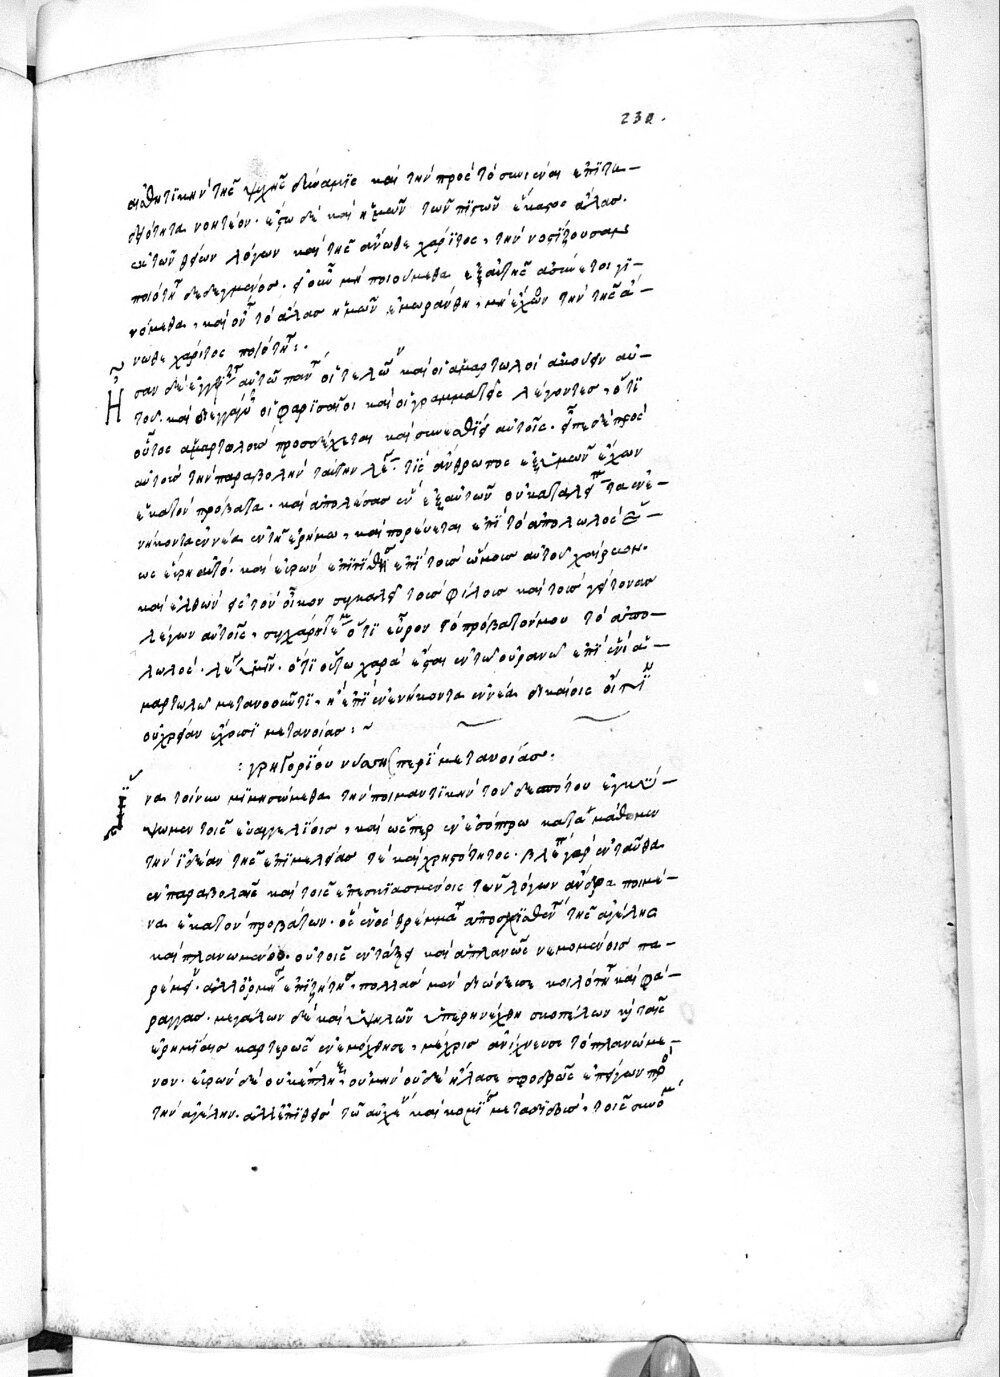 230.
αἰσθητικὴν τῆς ψυχῆς δύναμις καὶ τὴν πρὸς τὸ συνιέναι ἐπιτη-
δειότητα νοητέον. ἔστω δὲ καὶ ἡμῶν τῶν πιστῶν ἕκαστος ἅλας.
ἐκ τῶν θείων λόγων καὶ τῆς ἄνωθεν χάριτος, τὴν νοστίζουσαν
ποιότητα δεδεγμένος. εἰ οὖν μὴ ποιούμεθα ἐξ αὐτῆς ἀσύνετοι γι-
νόμεθα, καὶ οὕτω τὸ ἅλας ἡμῶν ἐμωράνθη, μὴ ἔχων τὴν τῆς ἄ-
νωθεν χάριτος ποιότητα:.
Ἦσαν δὲ ἐγγίζοντες αὐτῷ πάντες οἱ τελῶναι καὶ οἱ ἁμαρτωλοὶ ἀκούειν αὐ-
τοῦ. καὶ διεγόγγυζον οἱ φαρισαῖοι καὶ οἱ γραμματεῖς λέγοντες, ὅτι
οὗτος ἁμαρτωλοὺς προσδέχεται καὶ συνεσθίει αὐτοῖς. εἶπε δὲ πρὸς
αὐτοὺς τὴν παραβολὴν ταύτην λέγων. τίς ἄνθρωπος ἐξ ὑμῶν ἔχων
ἑκατὸν πρόβατα. καὶ ἀπολέσας ἓν ἐξ αὐτῶν οὐ καταλείπει τὰ ἐνε-
νήκοντα ἐννέα ἐν τῇ ἐρήμῳ, καὶ πορεύεται ἐπὶ τὸ ἀπολωλὸς
ἕως εὕρῃ αὐτό. καὶ εὑρὼν ἐπιτίθησιν ἐπὶ τοὺς ὤμους αὐτοῦ χαίρων.
καὶ ἐλθὼν εἰς τὸν οἶκον συγκαλεῖ τοὺς φίλους καὶ τοὺς γείτονας
λέγων αὐτοῖς, συγχάρητέ μοι ὅτι εὗρον τὸ πρόβατόν μου τὸ ἀπο-
λωλός. λέγω ὑμῖν. ὅτι οὕτω χαρὰ ἔσται ἐν τῷ οὐρανῷ ἐπὶ ἑνὶ ἁ-
μαρτωλῷ μετανοοῦντι, ἢ ἐπὶ ἐνενήκοντα ἐννέα δικαίοις οἵτινες
οὐ χρείαν ἔχουσι μετανοίας:~
: γρηγορίου νύσης περὶ μετανοίας.
ἵνα τοίνυν μιμησώμεθα τὴν ποιμαντικὴν τοῦ δεσπότου ἐγκύ-
ψωμεν τοῖς εὐαγγελίοις, καὶ ὥσπερ ἐν ἐσόπτρῳ καταμάθωμεν
τὴν ἰδέαν τῆς ἐπιμελείας τε καὶ χρηστότητος. βλέπω γὰρ ἐνταῦθα
ἐν παραβολαῖς καὶ τοῖς ἐπεσκιασμένοις τῶν λόγων ἄνδρα ποιμέ-
να ἑκατὸν προβάτων. ὃς ἑνὸς θρέμματος ἀποσχισθέντος τῆς ἀγέλης
καὶ πλανωμένου. οὐ τοῖς ἐν τάξει καὶ ἀπλανῶς νεμομένοις πα-
ρέμεινεν. ἀλλ' ὁρμήσας ἐπὶ ζήτησιν. πολλὰς μὲν διώδευσε κοιλότητας καὶ φά-
ραγγας. μεγάλων δὲ καὶ ὑψηλῶν ὑπερηνέχθη σκοπέλων καὶ ταῖς
ἐρημίαις καρτερῶς ἐνεμόχθησε, μέχρις ἀνίχνευσε τὸ πλανώμε-
νον. εὑρὼν δὲ οὐκ ἔπληξεν, οὐ μὴν οὐδὲ ἤλασε σφοδρῶς ἐπείγων πρὸς
τὴν ἀγέλην. ἀλλ' ἐπιθεὶς τῷ αὐχένι καὶ κομίσας